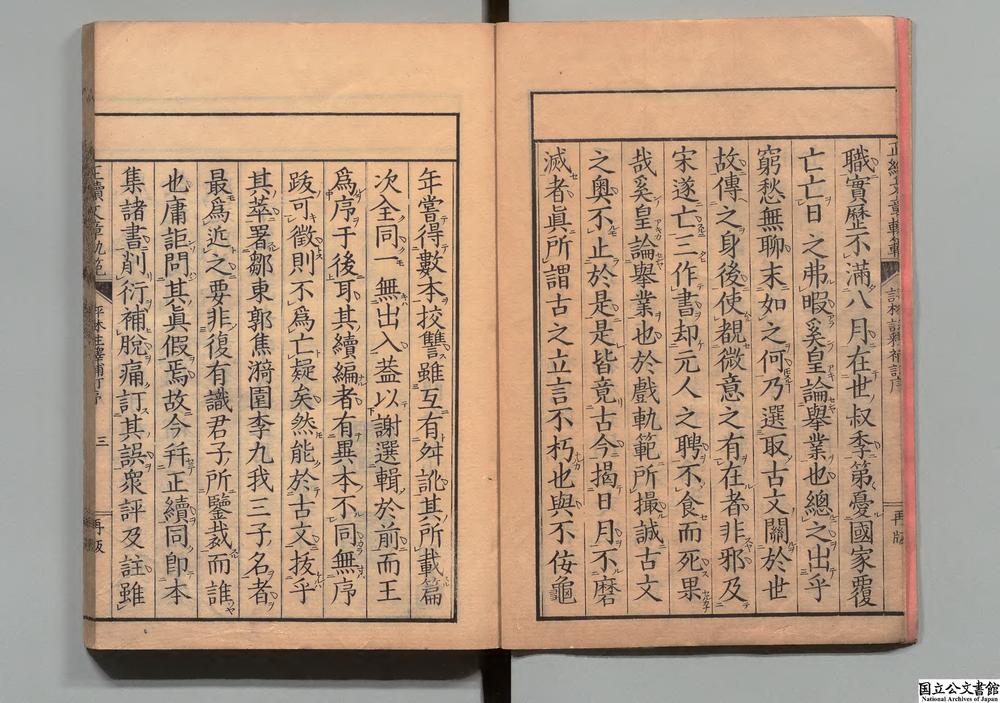 職實歷不滿八月在世叔季第憂國家覆
亡亡日之弗暇奚皇論舉業也總之出乎
窮愁無聊末如之何乃選取古文關於世
故傳之身後使覩微意之有在者非邪及
宋遂亡三作書却元人之聘不食而死果
哉奚皇論舉業也於戲軌範所撮誠古文
之奧不止於是是皆竟古今揭日月不磨
滅者眞所謂古之立言不朽也與不佞龜
年嘗得數本挍讐雖互有舛訛其所載篇
次全同一無出入葢以謝選輯於前而王
爲序于後耳其續編者有異本不同無序
跋可徵則不爲亡疑矣然能於古文拔乎
其萃署鄒東郭焦漪園李九我三子名者
最爲近之要非復有識君子所鑒裁而誰
也庸詎問其眞假焉故今幷正續同卽本
集諸書削衍補脫痛訂其誤衆評及註雖
正續文章軌範
評林註釋補訂序
三
再版
国立公文書館
National Archives of Japan